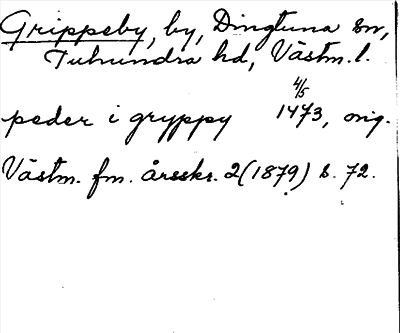 Grippeby, by, Dingtuna sn,
Tuhundra hd, Västm. l.
4/5
peder i gryppy 1473, orig.
Västm. fm. årsskr. 2 (1879) s. 72.